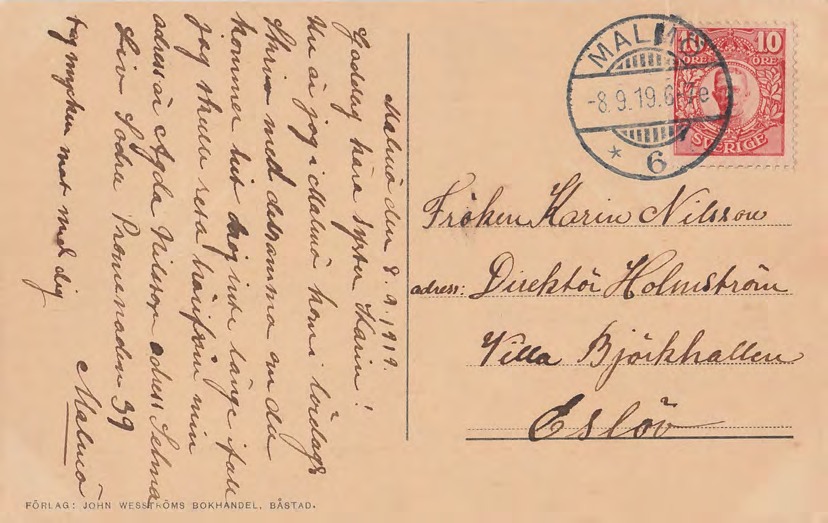 Malmö den 8.9.1919.
Goddag kära syster Karin!
Nu är jag i Malmö kom i lördags
Skriv med detsamma om du
kommer hit dröj inte länge ifall
jag skulle resa härifrån min
adress är Agda Nilsson adress Selma
Liv Södra Promenaden 39
tag mycken mat med dig
Malmö
MALMÖ
-8.9.19.6-7e
* 6
10 10
ÖRE ÖRE
SVERIGE
Fröken Karin Nilsson
adress: Direktör Holmström
Villa Björkhallen
Eslöv
FÖRLAG: JOHN WESSTRÖMS BOKHANDEL, BÅSTAD.